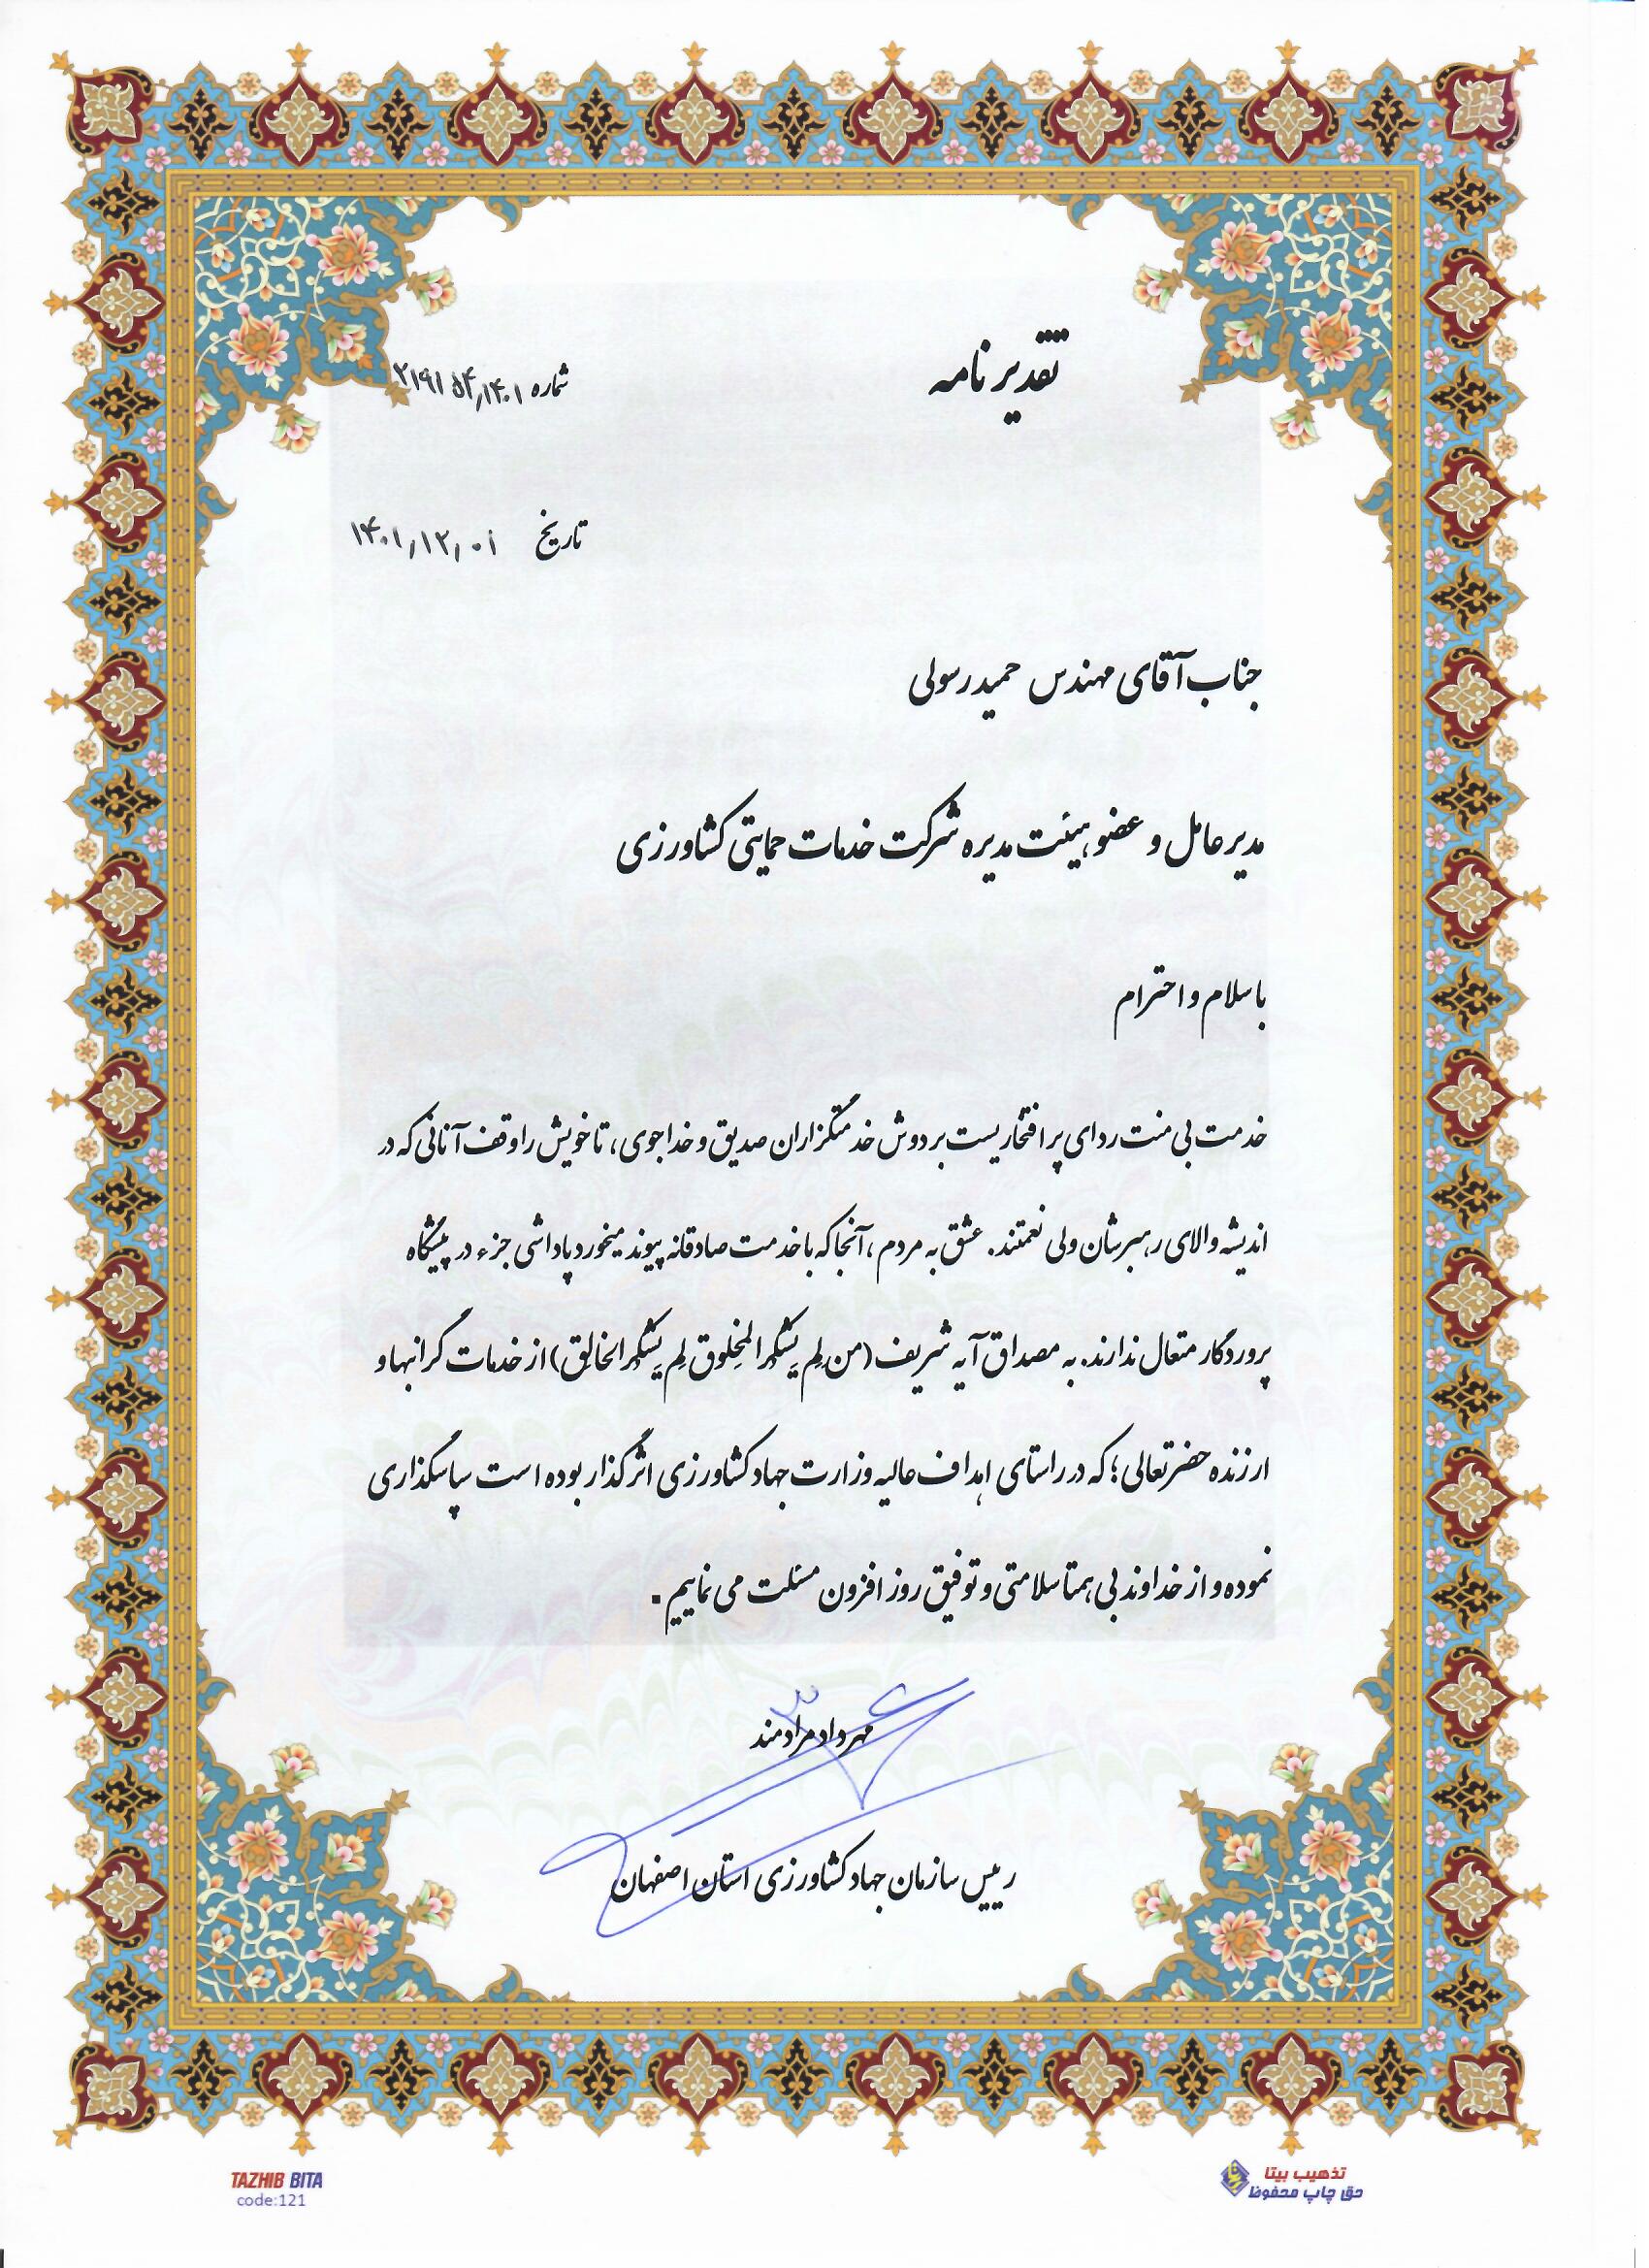 تقدیرنامه
شماره ۲۱۹۱۵۴٫۱۴۰۱
تاریخ ۱۴۰۱٫۱۲٫۰۱
جناب آقای مهندس حمید رسولی
مدیرعامل و عضو هیئت مدیره شرکت خدمات حمایتی کشاورزی
با سلام و احترام
خدمت بی منت ردای پر افتخاریست بر دوش خدمتگزاران صدیق و خداجوی، تا خویش را وقف آنانی که در
اندیشه والای رهبرشان ولی نعمتند. عشق به مردم، آنجا که با خدمت صادقانه پیوند میخورد پاداشی جزء در پیشگاه
پروردگار متعال ندارند. به مصداق آیه شریف (من لم یشکر المخلوق لم یشکر الخالق) از خدمات گرانبها و
ارزنده حضرتعالی؛ که در راستای اهداف عالیه وزارت جهاد کشاورزی اثرگذار بوده است سپاسگذاری
نموده و از خداوند بی همتا سلامتی و توفیق روز افزون مسئلت می نماییم.
مهرداد مرادمند
رییس سازمان جهاد کشاورزی استان اصفهان
TAZHIB BITA
code:121
تذهیب بیتا
حق چاپ محفوظ